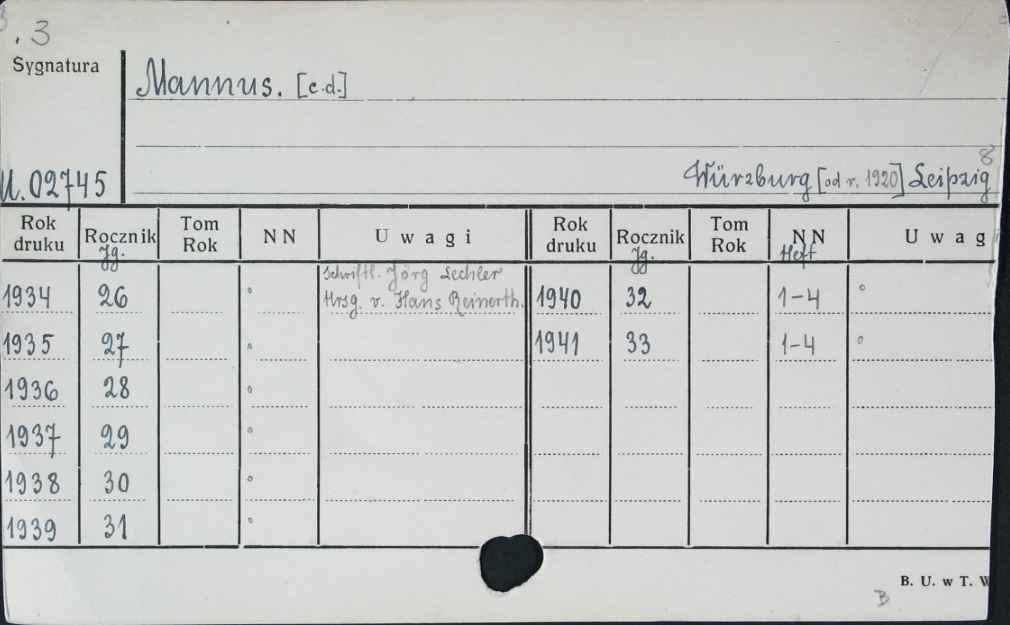 . 3
Sygnatura
Mannus. [c.d.]
U. 02745
8
Würzburg [od r. 1920] Leipzig
Rok druku Rocznik Tom Rok NN Uwagi Rok druku Rocznik Tom Rok NN Uwag
Jg. Jg. Heft
Schriftl. Jörg Lechler
1934 26 ° Hrsg. v. Hans Reinerth. 1940 32 1-4 °
1935 27 ° 1941 33 1-4 °
1936 28 °
1937 29 °
1938 30 °
1939 31 °
B. U. w T. W
B